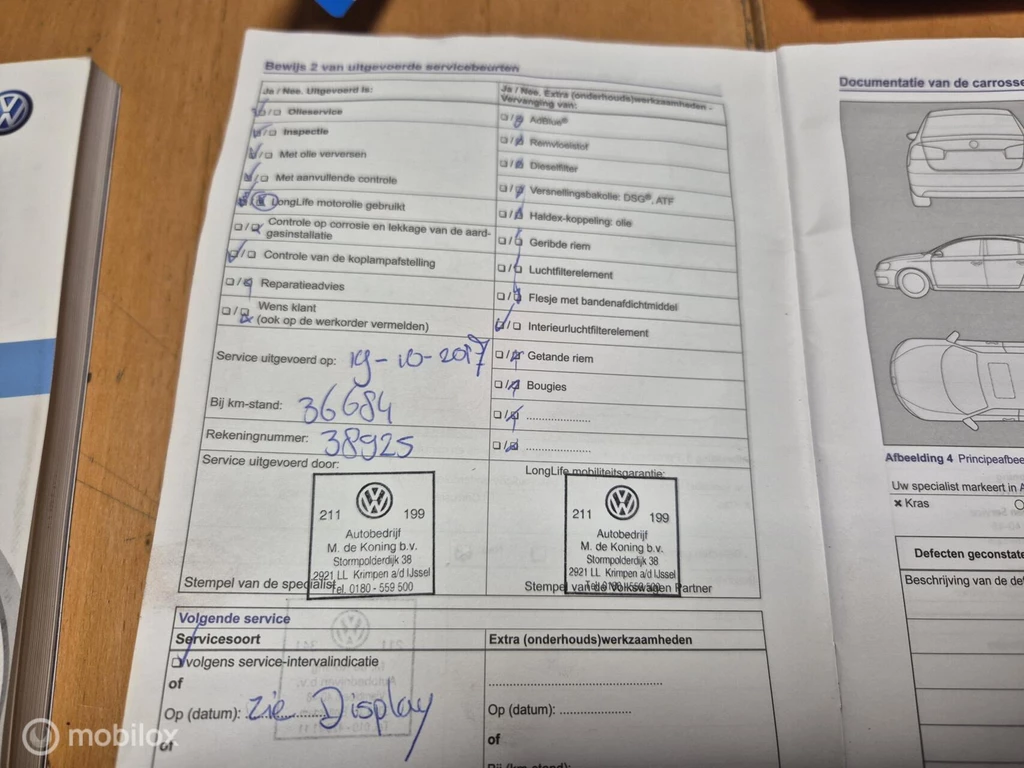 Bewijs 2 van uitgevoerde servicebeurten
Ja / Nee, Uitgevoerd is:
Olieservice
Inspectie
Met olie verversen
Met aanvullende controle
LongLife motorolie gebruikt
Controle op corrosie en lekkage van de aard-
gasinstallatie
Controle van de koplampafstelling
Reparatieadvies
Wens klant
(ook op de werkorder vermelden)
Service uitgevoerd op: 19-10-2017
Bij km-stand: 36684
Rekeningnummer: 38925
Service uitgevoerd door:
211 199
Autobedrijf
M. de Koning b.v.
Stormpolderdijk 38
2921 LL Krimpen a/d IJssel
Tel. 0180 - 559 500
Stempel van de specialist
Ja / Nee, Extra (onderhouds)werkzaamheden -
Vervanging van:
AdBlue®
Remvloeistof
Dieselfilter
Versnellingsbakolie: DSG®, ATF
Haldex-koppeling: olie
Geribde riem
Luchtfilterelement
Flesje met bandenafdichtmiddel
Interieurluchtfilterelement
Getande riem
Bougies
LongLife mobiliteitsgarantie:
211 199
Autobedrijf
M. de Koning b.v.
Stormpolderdijk 38
2921 LL Krimpen a/d IJssel
Tel. 0180 - 559 500
Stempel van de Volkswagen Partner
Volgende service
Servicesoort
volgens service-intervalindicatie
of
Op (datum): zie Display
of
Extra (onderhouds)werkzaamheden
Op (datum):
of
Documentatie van de carrosse
Afbeelding 4 Principeafbee
Uw specialist markeert in A
× Kras
Defecten geconstate
Beschrijving van de def
mobilox